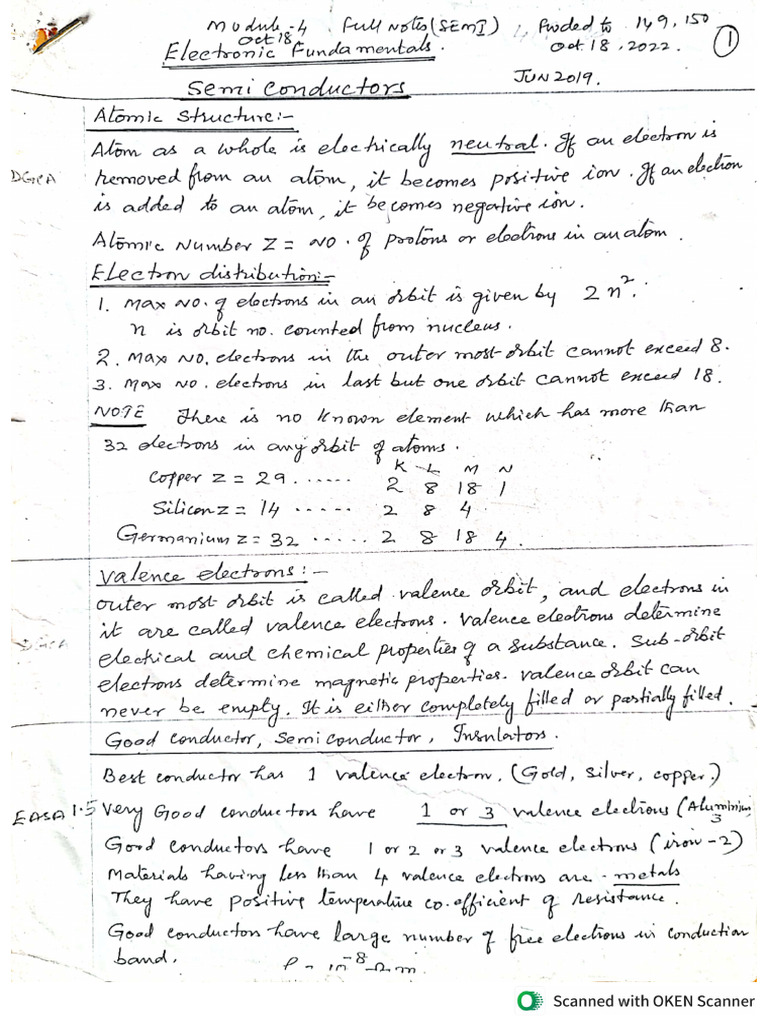 Module-4 Full Notes (SEMI), Added to 149, 150
Oct 18 Oct 18, 2022. 1
Electronic Fundamentals.
JUN 2019.
Semi conductors
Atomic structure:-
Atom as a whole is electrically neutral. If an electron is
DGCA removed from an atom, it becomes positive ion. If an electron
is added to an atom, it becomes negative ion.
Atomic Number Z = No. of protons or electrons in an atom.
Electron distribution:-
1. Max No. of electrons in an orbit is given by 2n².
n is orbit no. counted from nucleus.
2. Max No. electrons in the outer most orbit cannot exceed 8.
3. Max No. electrons in last but one orbit cannot exceed 18.
NOTE There is no known element which has more than
32 electrons in any orbit of atoms.
K L M N
Copper Z = 29 ...... 2 8 18 1
Silicon Z = 14 ...... 2 8 4
Germanium Z = 32 ..... 2 8 18 4.
Valence electrons:-
outer most orbit is called valence orbit, and electrons in
it are called valence electrons. Valence electrons determine
DGCA electrical and chemical properties of a substance. Sub-orbit
electrons determine magnetic properties. Valence orbit can
never be empty. It is either completely filled or partially filled.
Good conductor, Semiconductor, Insulators.
Best conductor has 1 valence electron. (Gold, silver, copper.)
EASA 1.5 Very Good conductors have 1 or 3 valence electrons (Aluminium, 3
Good conductors have 1 or 2 or 3 valence electrons (iron-2)
Materials having less than 4 valence electrons are - metals
They have positive temperature co.efficient of resistance.
Good conductors have large number of free electrons in conduction
band. ρ - 10⁻⁸ Ω m.
Scanned with OKEN Scanner